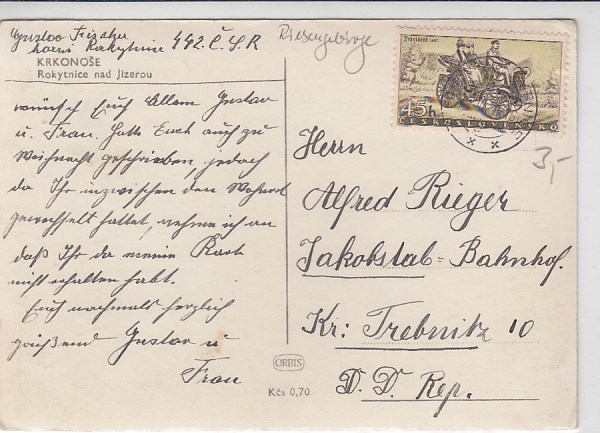 Gustav Fischer
horní Rokytnice 442. Č.S.R
Riesengebirge
KRKONOŠE
Rokytnice nad Jizerou
wünsch Euch Allem Gustav
u. Frau. Hatte Euch auch zu
Weihnacht geschrieben, jedoch
da Ihr inzwischen den Wohnort
gewechselt hattet, nehme ich an
daß Ihr da meine Karte
nicht erhalten habt.
Euch nochmals herzlich
grüßend Gustav u
Frau
45h
ČESKOSLOVENSKO
3,-
Herrn
Alfred Rieger
Jakobstal=Bahnhof.
Kr: Trebnitz 10
D. D. Rep.
ORBIS
Kčs 0,70